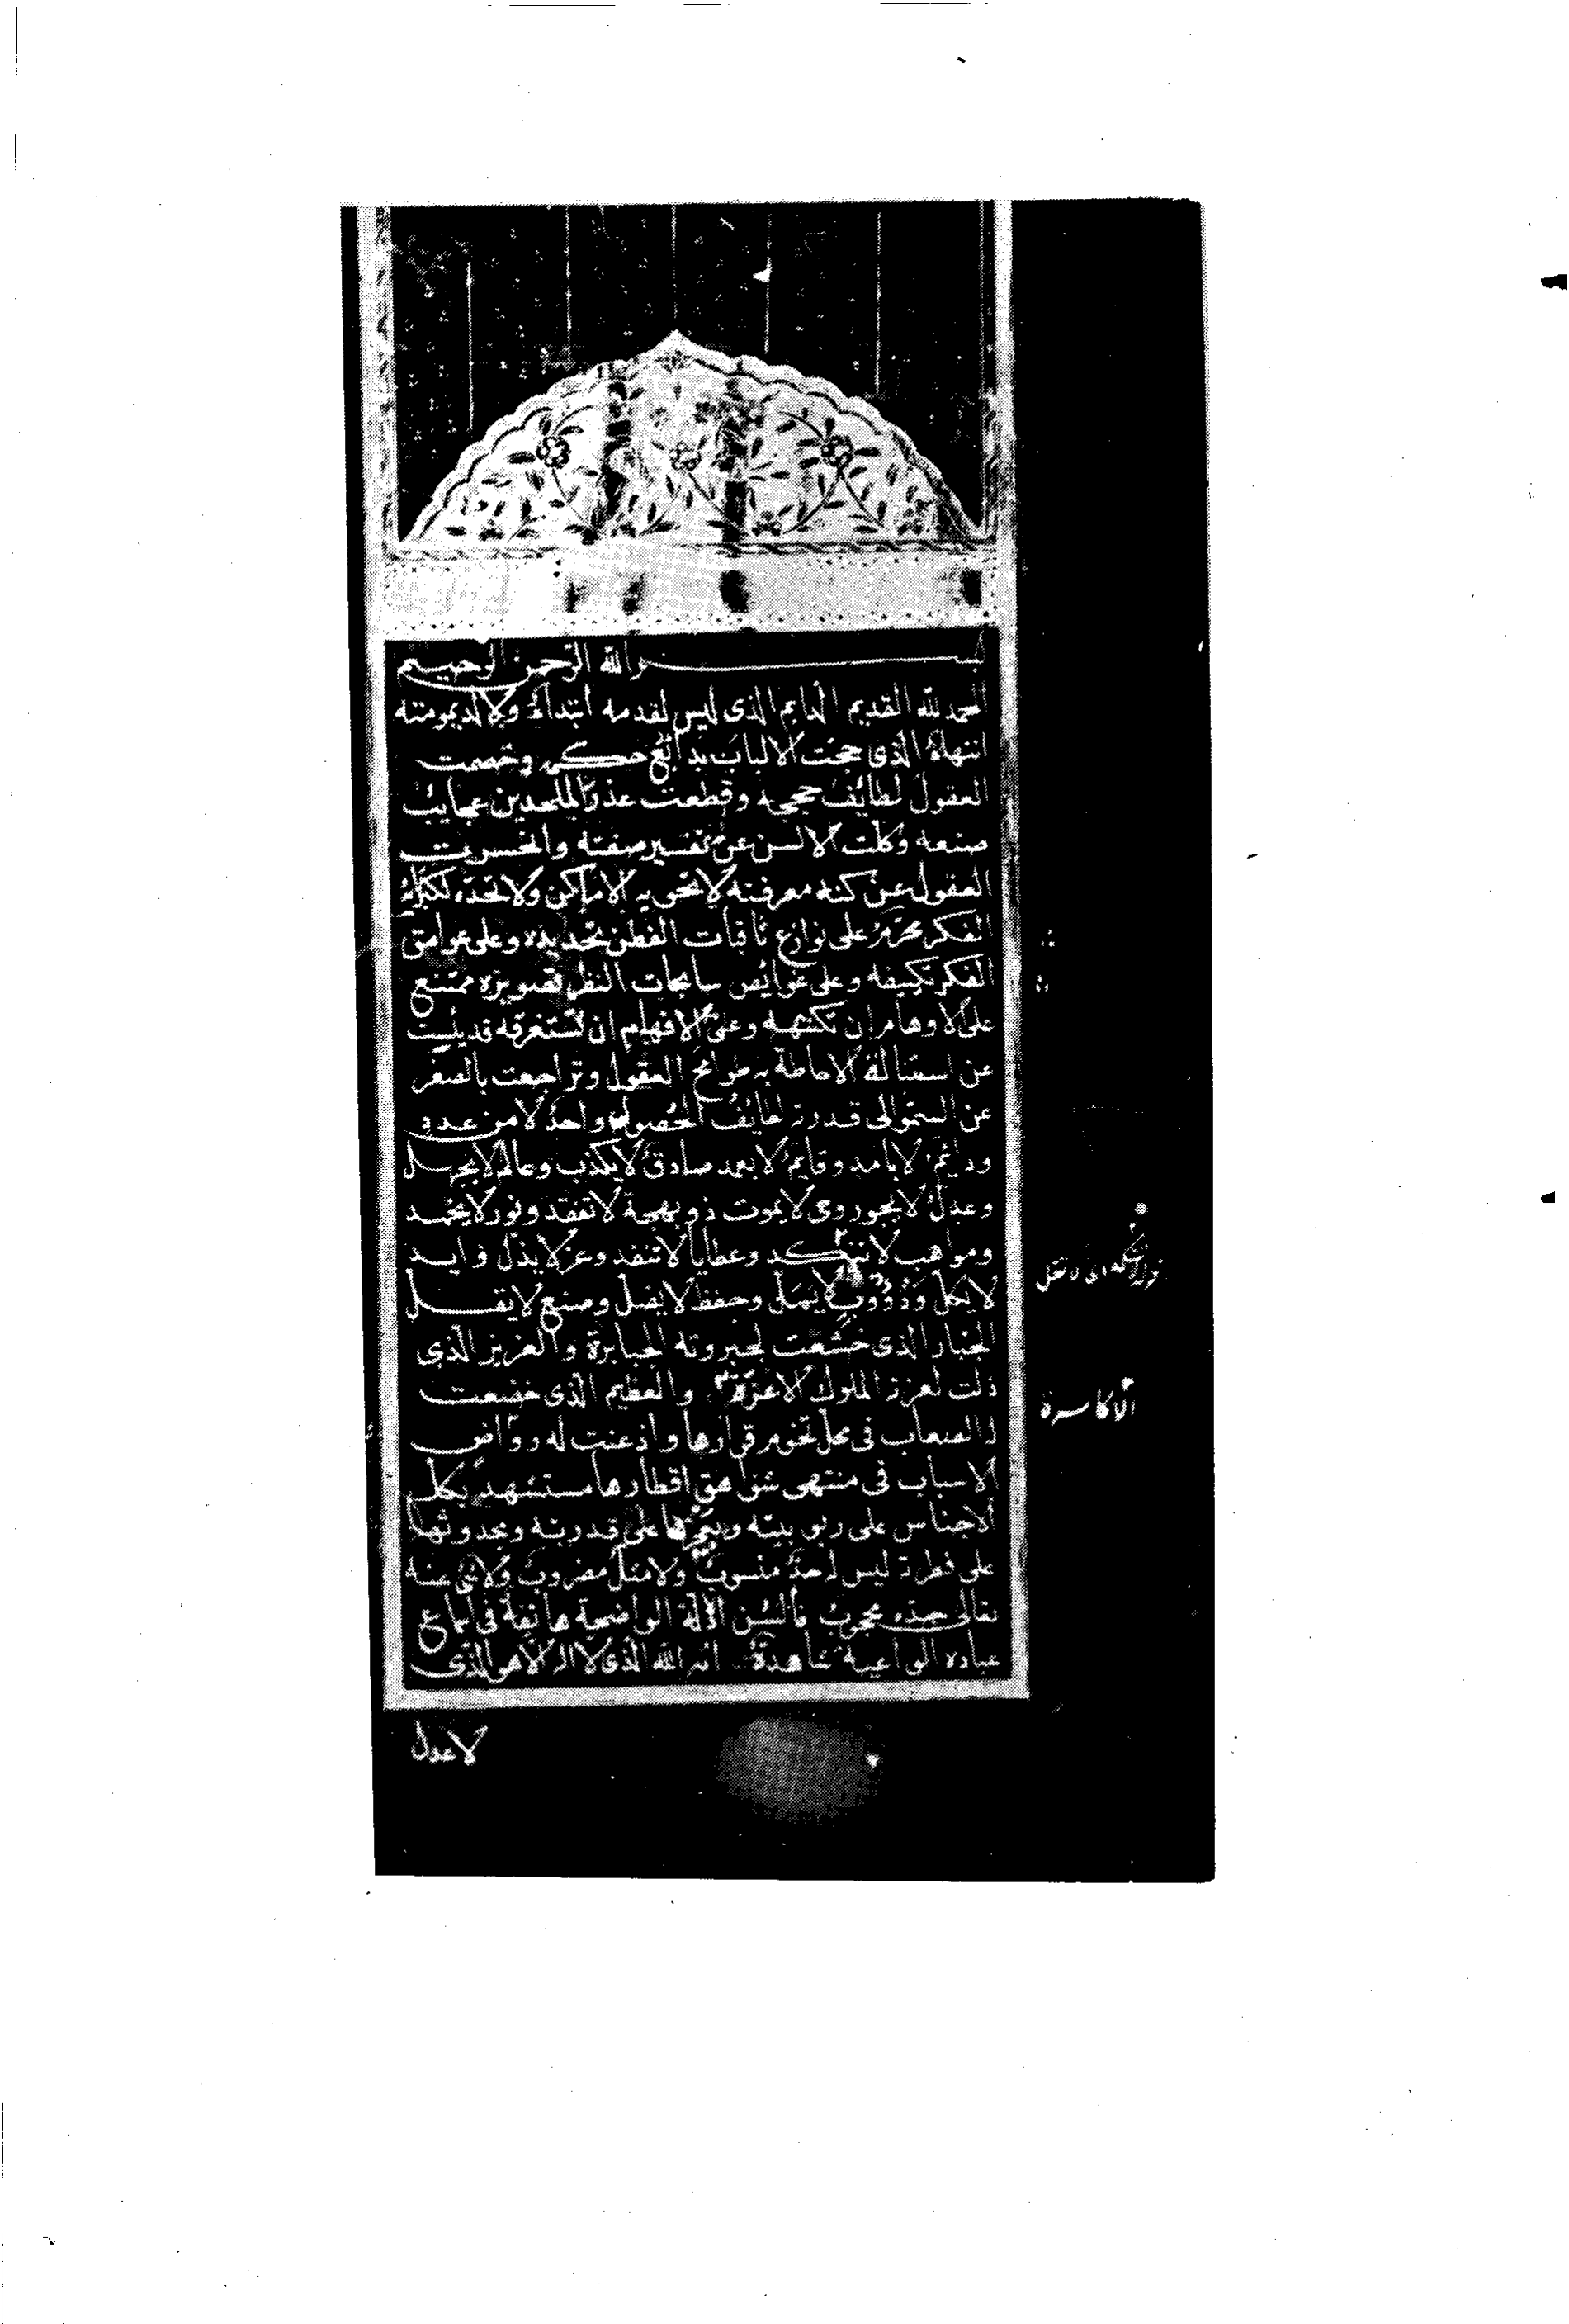 بسم الله الرحمن الرحيم
الحمد لله القديم الدايم الذى ليس لقدمه ابتداء ولا لديمومته
انتهاء الذى حجت الالباب بدائع حكمه وخصمت
العقول لطايف حججه وقطعت عذر الملحدين عجايب
صنعه وكلت الالسن عن تفسير صفته وانحسرت
العقول عن كنه معرفته لا تحويه الاماكن ولا تحده
الفكر محرم على نوازع ثاقبات الفطن تحديده وعلى عوامق
الفكر تكييفه وعلى غوائص سابحات النظر تصويره ممتنع
على الاوهام ان تكتنهه وعلى الافهام ان تستغرقه قد يئست
عن استنالة الاحاطة به طوامح العقول وتراجعت بالصغر
عن السمو الى قدرته لطايف الخصوم واحد لا من عدد
ودايم لا بامد وقايم لا بعمد صادق لا يكذب وعالم لا يجهل
وعدل لا يجور وحى لا يموت ذو بهجة لا تفقد ونور لا يخمد
ومواهب لا تنكد وعطايا لا تنفد وعز لا يذل وايد
لا يكل ودؤوب لا يمل وحفظ لا يضل وصنع لا يقل
الجبار الذى خشعت لجبروته الجبابرة والعزيز الذى
ذلت لعزته الملوك الاعزة والعظيم الذى خضعت
له الصعاب فى محل تخوم قرارها واذعنت له رواض
الاسباب فى منتهى شواهق اقطارها مستشهد بكل
الاجناس على ربوبيته وبعجزها على قدرته وبحدوثها
على فطرته ليس له حد منسوب ولا مثل مضروب ولا شئ عنه
تعالى محجوب فألسن الادلة الواضحة هاتفة فى اسماع
عباده الواعية شاهدة انه الله الذى لا اله الا هو الذى
الاكاسرة
لا عدل